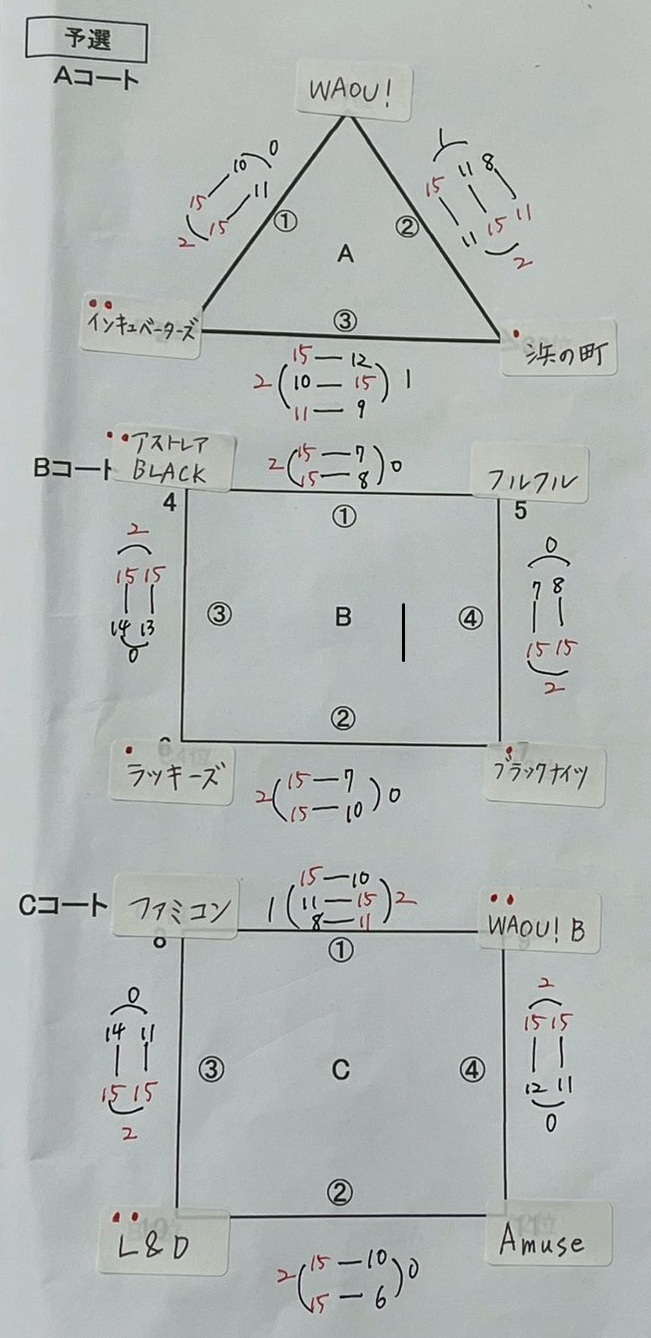 予選
Aコート
WAOU!
10 0
15 11
2 15
①
1
11 8
15
15 11
11
2
②
A
③
インキュベーターズ
浜の町
15 — 12
2 ( 10 — 15 ) 1
11 — 9
Bコート
アストレア
BLACK
2 ( 15 — 7 ) 0
15 — 8
フルフル
4
①
5
2
15 15
14 13
0
③
B
④
0
7 8
15 15
2
②
ラッキーズ
ブラックナイツ
2 ( 15 — 7 ) 0
15 — 10
Cコート
ファミコン
15 — 10
1 ( 11 — 15 ) 2
8 — 11
WAOU! B
①
0
14 11
15 15
2
③
C
④
2
15 15
12 11
0
②
L&D
Amuse
2 ( 15 — 10 ) 0
15 — 6